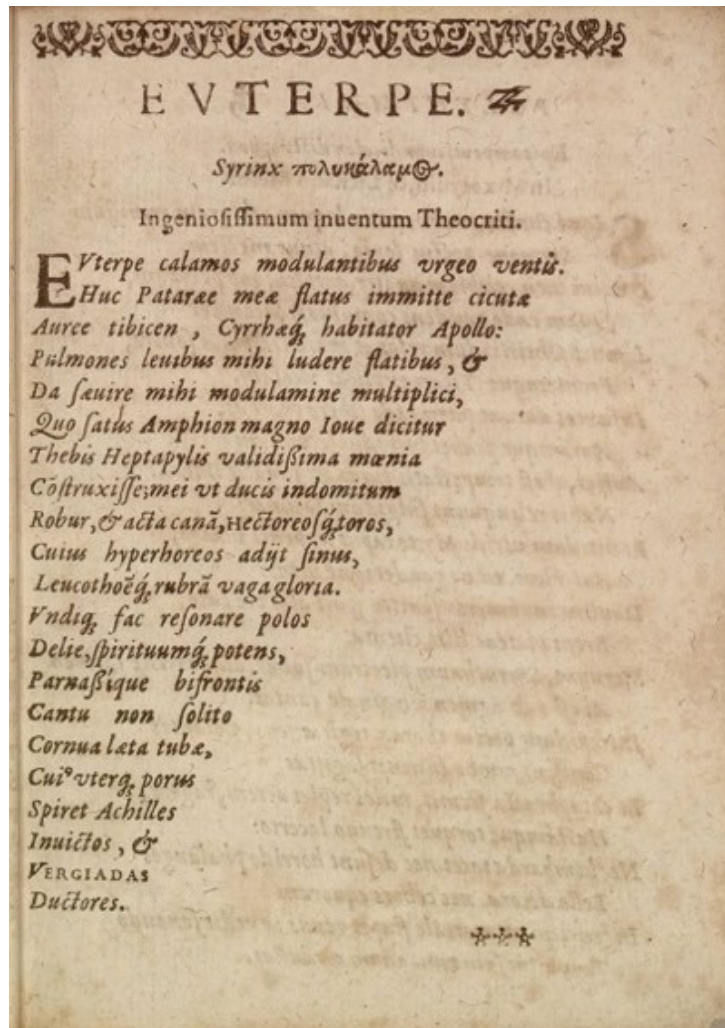 EVTERPE.
Syrinx πολυκάλαμος.
Ingeniosissimum inuentum Theocriti.
EVterpe calamos modulantibus vrgeo ventis.
Huc Pataræ meæ flatus immitte cicutæ
Auree tibicen, Cyrrhæq́; habitator Apollo:
Pulmones leuibus mihi ludere flatibus, &
Da sæuire mihi modulamine multiplici,
Quo satus Amphion magno Ioue dicitur
Thebis Heptapylis validißima mœnia
Cōstruxisse; mei vt ducis indomitum
Robur, & acta canā, Hectoreosq́; toros,
Cuius hyperboreos adijt sinus,
Leucothoēq́; rubrā vaga gloria.
Vndiq́; fac resonare polos
Delie, spirituumq́; potens,
Parnaßique bifrontis
Cantu non solito
Cornua læta tubæ,
Cui⁹ vterq́; porus
Spiret Achilles
Inuictos, &
VERGIADAS
Ductores.
***